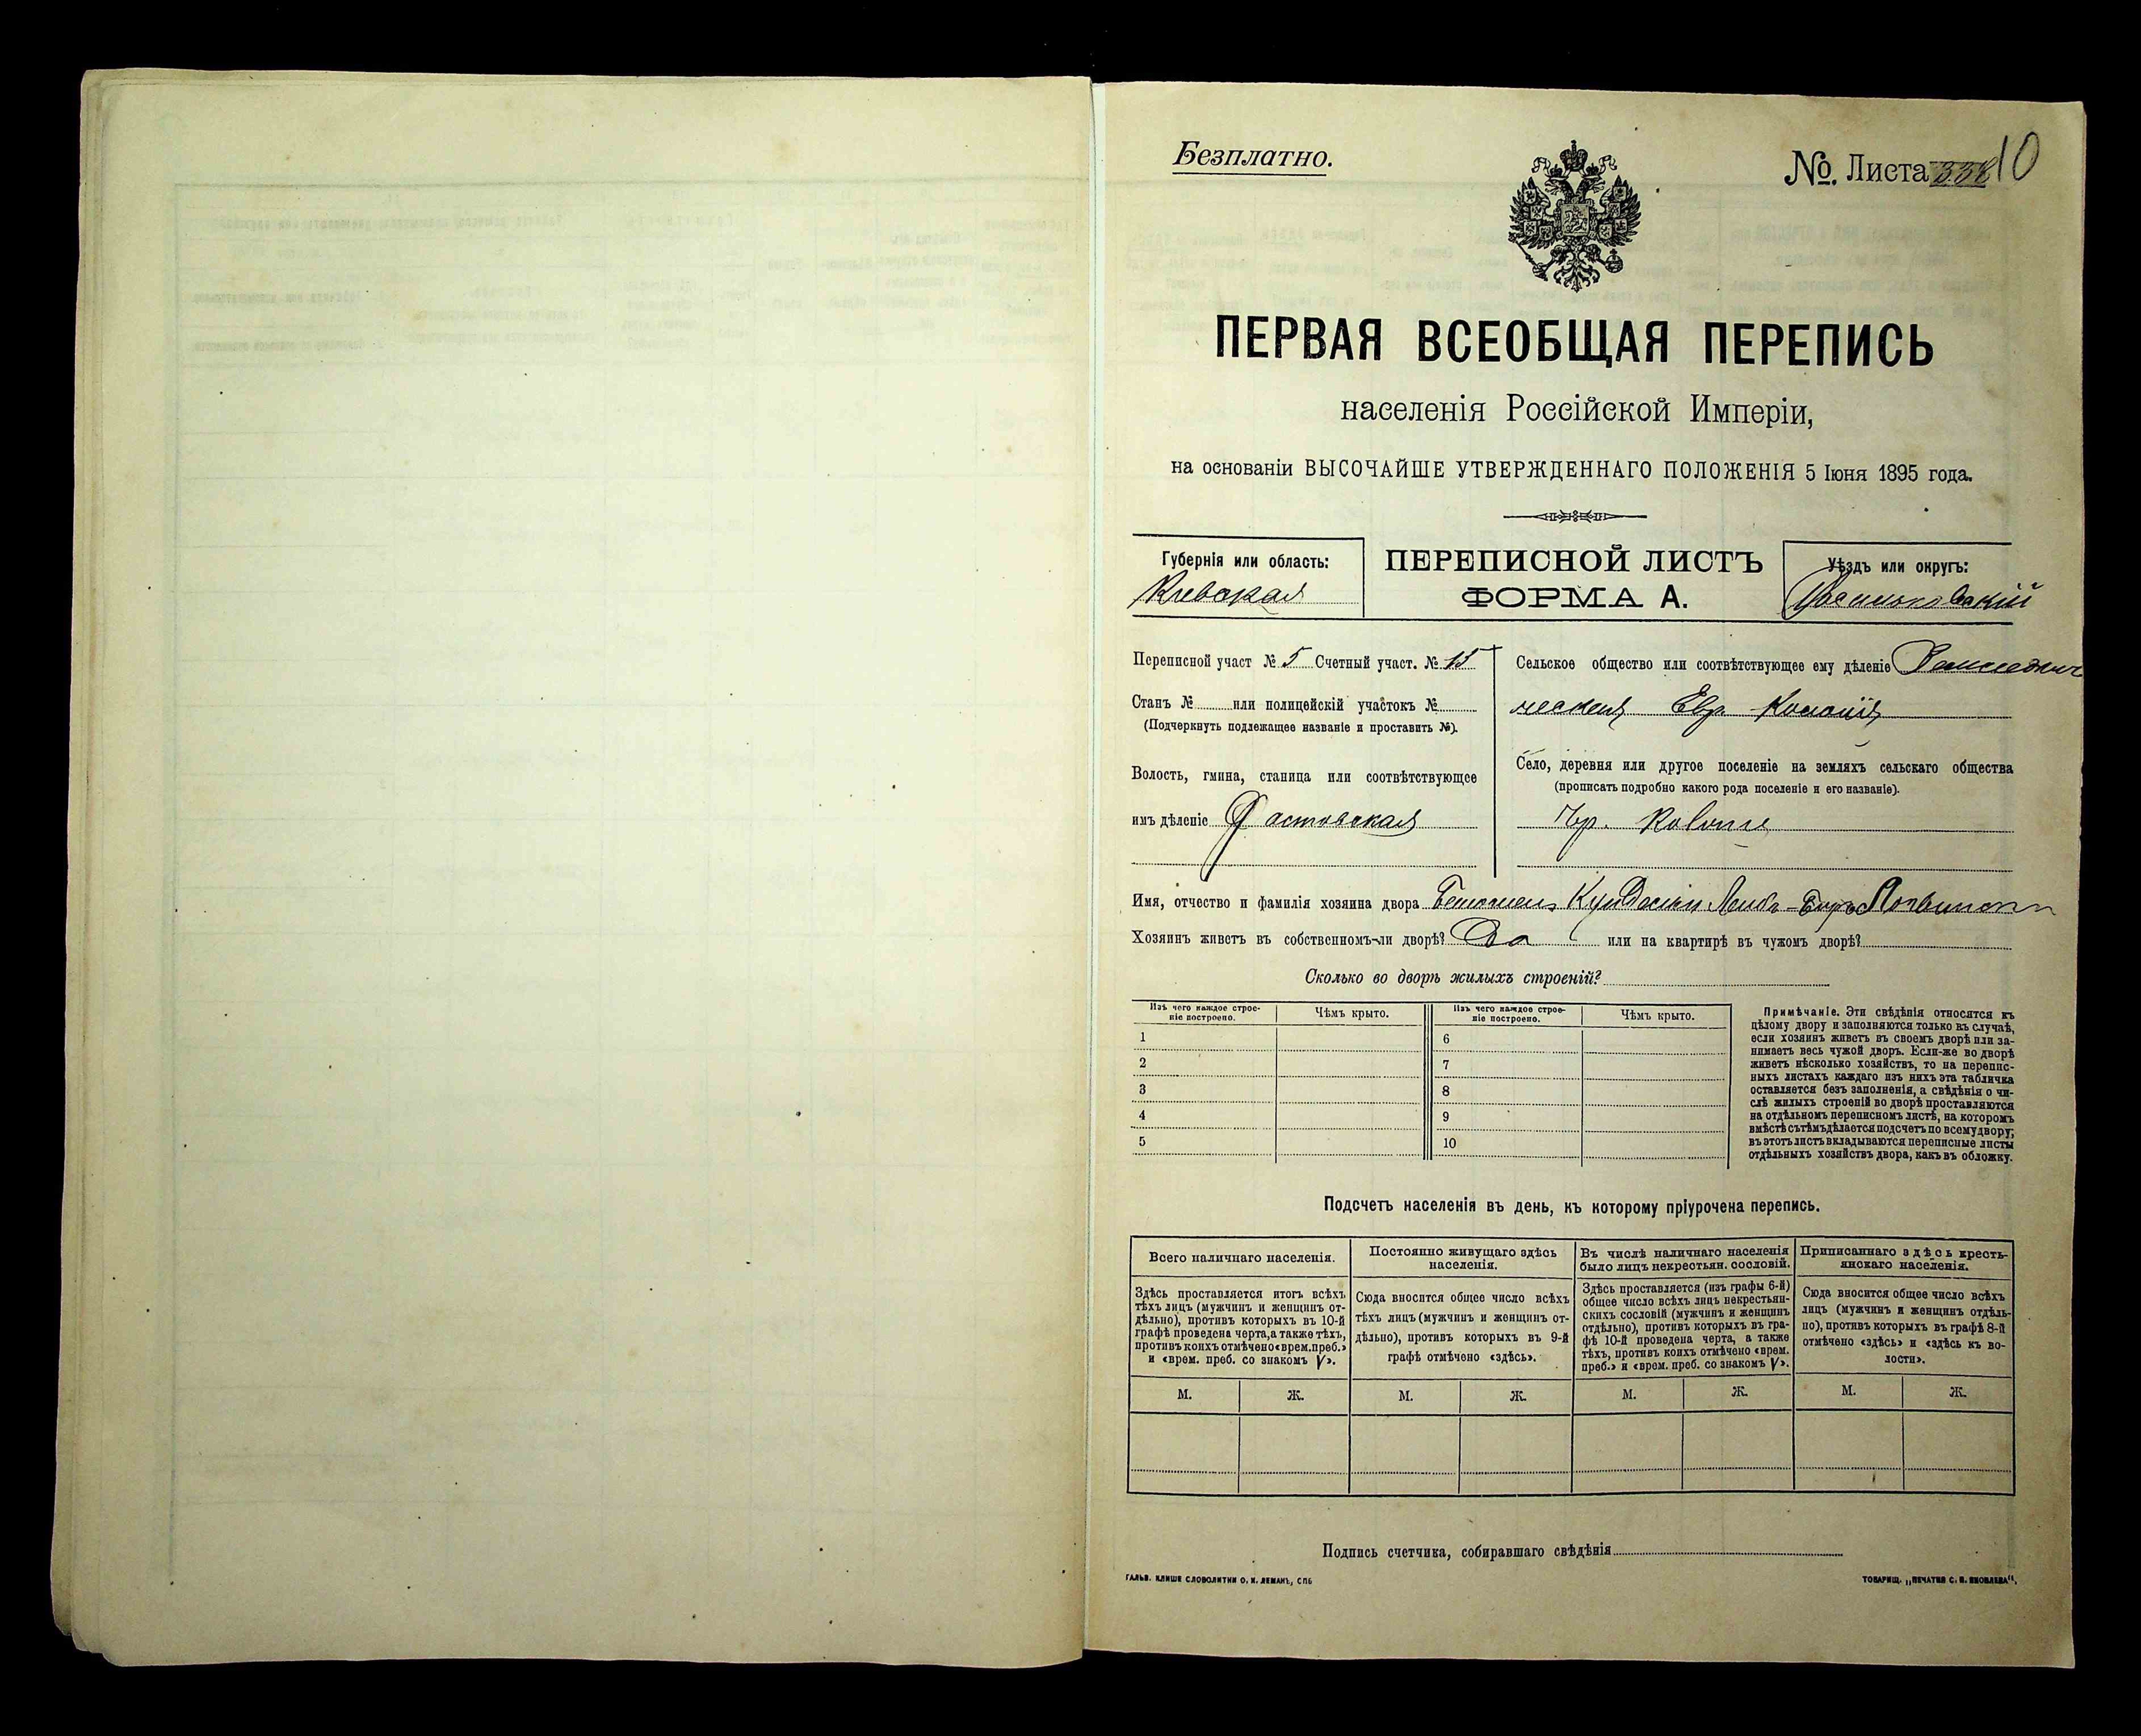 Безплатно.
№. Листа 10
ПЕРВАЯ ВСЕОБЩАЯ ПЕРЕПИСЬ
населенія Россійской Имперіи,
на основаніи ВЫСОЧАЙШЕ УТВЕРЖДЕННАГО ПОЛОЖЕНІЯ 5 Іюня 1895 года.
Губернія или область:
Кіевская
ПЕРЕПИСНОЙ ЛИСТЪ
ФОРМА А.
Уѣздъ или округъ:
Васильковскій
Переписной участ № 5 Счетный участ. № 15
Станъ № или полицейскій участокъ №
(Подчеркнуть подлежащее названіе и проставить №).
Волость, гмина, станица или соотвѣтствующее
имъ дѣленіе Фастовская
Сельское общество или соотвѣтствующее ему дѣленіе
Евр. Колонія
Село, деревня или другое поселеніе на земляхъ сельскаго общества
(прописать подробно какого рода поселеніе и его названіе).
Имя, отчество и фамилія хозяина двора
Хозяинъ живетъ въ собственномъ-ли дворѣ? Да или на квартирѣ въ чужомъ дворѣ?
Сколько во дворѣ жилыхъ строеній?
Изъ чего каждое строе-
ніе построено.
Чѣмъ крыто.
Изъ чего каждое строе-
ніе построено.
Чѣмъ крыто.
1
2
3
4
5
6
7
8
9
10
Примѣчаніе. Эти свѣдѣнія относятся къ
цѣлому двору и заполняются только въ случаѣ,
если хозяинъ живетъ въ своемъ дворѣ или за-
нимаетъ весь чужой дворъ. Если-же во дворѣ
живетъ нѣсколько хозяйствъ, то на перепис-
ныхъ листахъ каждаго изъ нихъ эта табличка
оставляется безъ заполненія, а свѣдѣнія о чи-
слѣ жилыхъ строеній во дворѣ проставляются
на отдѣльномъ переписномъ листѣ, на которомъ
вмѣстѣ съ тѣмъ дѣлается подсчетъ по всему двору;
въ этотъ листъ вкладываются переписные листы
отдѣльныхъ хозяйствъ двора, какъ въ обложку.
Подсчетъ населенія въ день, къ которому пріурочена перепись.
Всего наличнаго населенія.
Здѣсь проставляется итогъ всѣхъ
тѣхъ лицъ (мужчинъ и женщинъ от-
дѣльно), противъ которыхъ въ 10-й
графѣ проведена черта, а также тѣхъ,
противъ коихъ отмѣчено «врем. преб.»
и «врем. преб. со знакомъ V».
Постоянно живущаго здѣсь
населенія.
Сюда вносится общее число всѣхъ
тѣхъ лицъ (мужчинъ и женщинъ от-
дѣльно), противъ которыхъ въ 9-й
графѣ отмѣчено «здѣсь».
Въ числѣ наличнаго населенія
было лицъ некрестьян. сословій.
Здѣсь проставляется (изъ графы 6-й)
общее число всѣхъ лицъ некрестьян-
скихъ сословій (мужчинъ и женщинъ
отдѣльно), противъ которыхъ въ гра-
фѣ 10-й проведена черта, а также
тѣхъ, противъ коихъ отмѣчено «врем.
преб.» и «врем. преб. со знакомъ V».
Приписаннаго здѣсь кресть-
янскаго населенія.
Сюда вносится общее число всѣхъ
лицъ (мужчинъ и женщинъ отдѣль-
но), противъ которыхъ въ графѣ 8-й
отмѣчено «здѣсь» и «здѣсь къ во-
лости».
М. Ж. М. Ж. М. Ж. М. Ж.
Подпись счетчика, собиравшаго свѣдѣнія
ГАЛЬВ. КЛИШЕ СЛОВОЛИТНИ О. И. ЛЕМАНЪ, СПБ
ТОВАРИЩ. „ПЕЧАТНЯ С. П. ЯКОВЛЕВА".